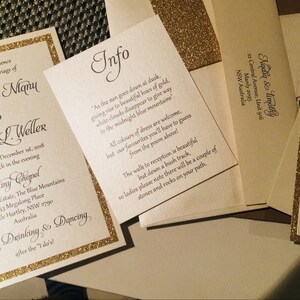 Niamh
& Weller
December 1st, 2018
in the evening
Chapel
Estate, The Blue Mountains
Megalong Place
Little Hartley, NSW 2790
Australia
Drinking & Dancing
after the "I do's!
Info
"As the sun goes down at dusk,
giving way to beautiful hues of gold,
white clouds disappear to give way
to the midnight blue mountains"
All colours of dress are welcome,
but our favourites you'll have to guess
from the poem above!
The walk to reception is beautiful
but down a bush track,
so ladies please note there will be a couple of
stones and rocks on your path.
Timothy
Central Avenue, Unit
Manly 2095
NSW Australia